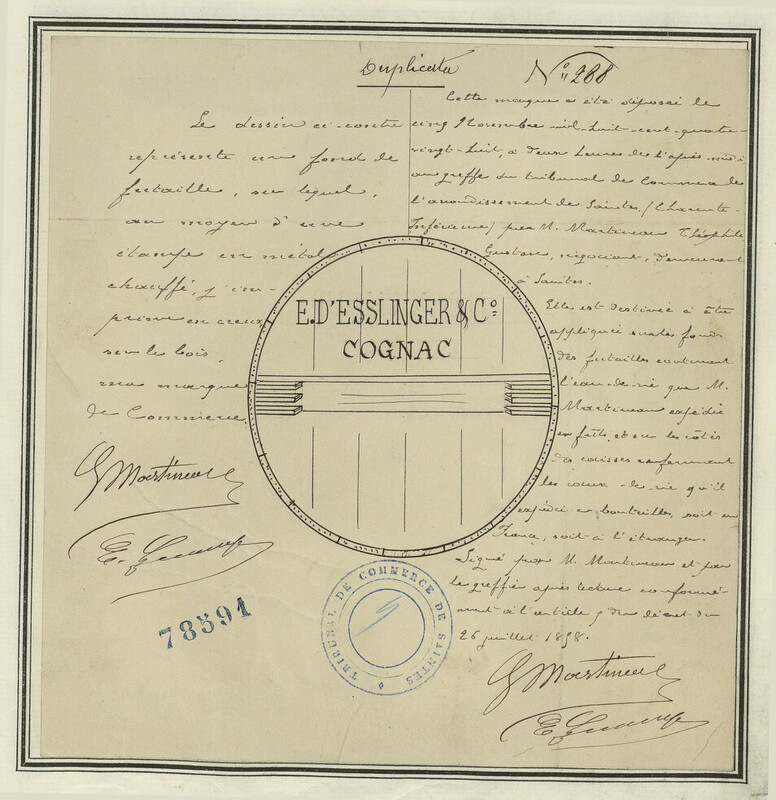 Duplicata
N° 288
Le dessin ci-contre
représente un fond de
futaille, sur lequel,
au moyen d'une
étampe en métal
chauffé, j'im-
prime en creux
sur le bois,
ma marque
de Commerce.
G Martineau
Cette marque a été déposée le
cinq Novembre mil-huit-cent-quatre-
vingt-huit, à deux heures de l'après-midi
au greffe du tribunal de Commerce de
l'arrondissement de Saintes, (Charente-
Inférieure) par M. Martineau Théophile
Gustave, négociant, demeurant
à Saintes.
Elle est destinée à être
appliquée sur les fonds
des futailles contenant
l'eau-de-vie que M.
Martineau expédie
en fûts, et sur les côtés
des caisses renfermant
les eaux-de-vie qu'il
expédie en bouteilles, soit en
France, soit à l'étranger.
Signé par M. Martineau et par
le greffier après lecture conformé-
ment à l'article 5 du décret du
26 juillet 1858.
G Martineau
E. D'ESSLINGER & Co:
COGNAC
78591
TRIBUNAL DE COMMERCE DE SAINTES